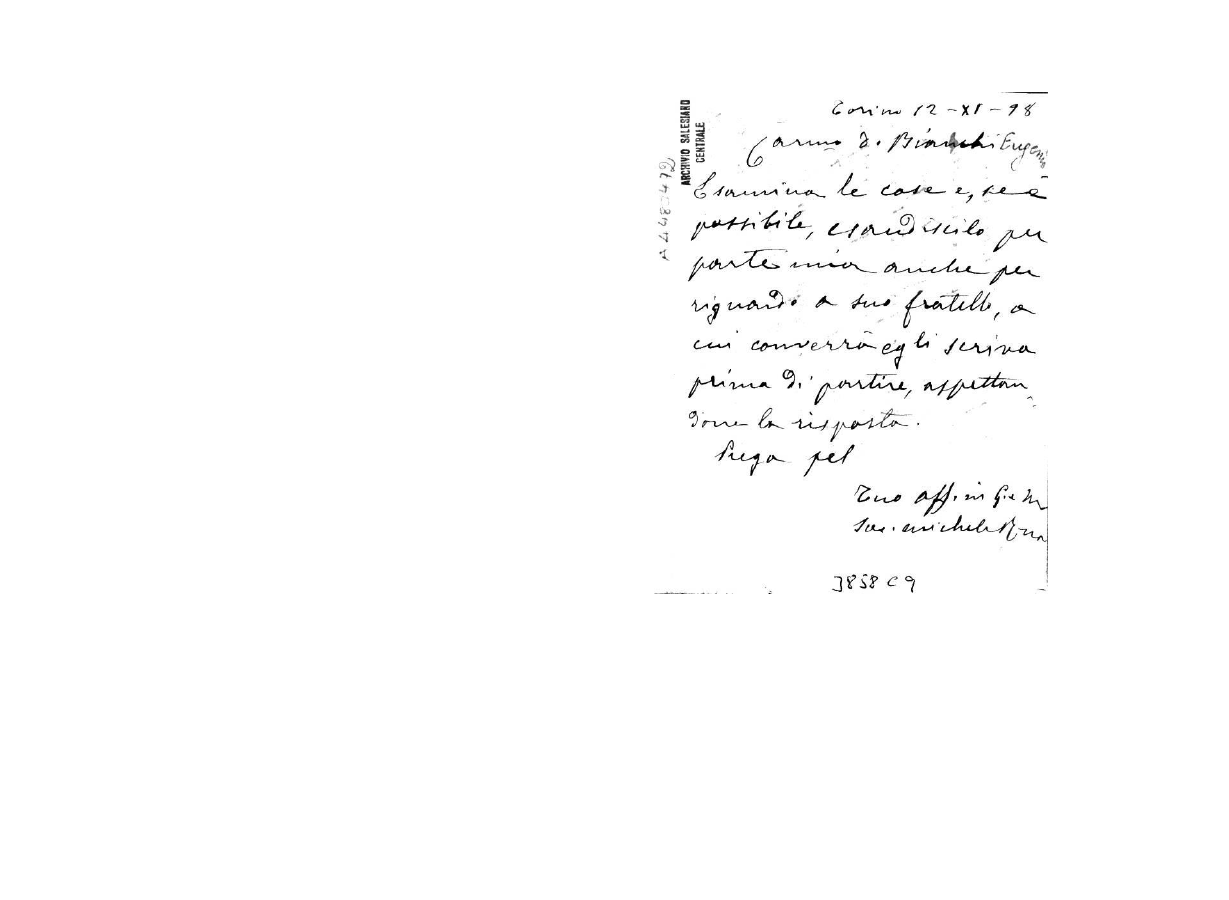 Torino 12-XI-98
Carmo D. Bianchi Eugenio
Esamina le cose e, se è
possibile, esaudiscilo per
parte mia anche per
riguardo a suo fratello, a
cui converrà egli scriva
prima di partire, aspettan
done la risposta.
Prega pel
Tuo aff.mo in G. e M.
Sac. Michele Rua
3858 C 9
ARCHIVIO SALESIANO
CENTRALE
A4480472